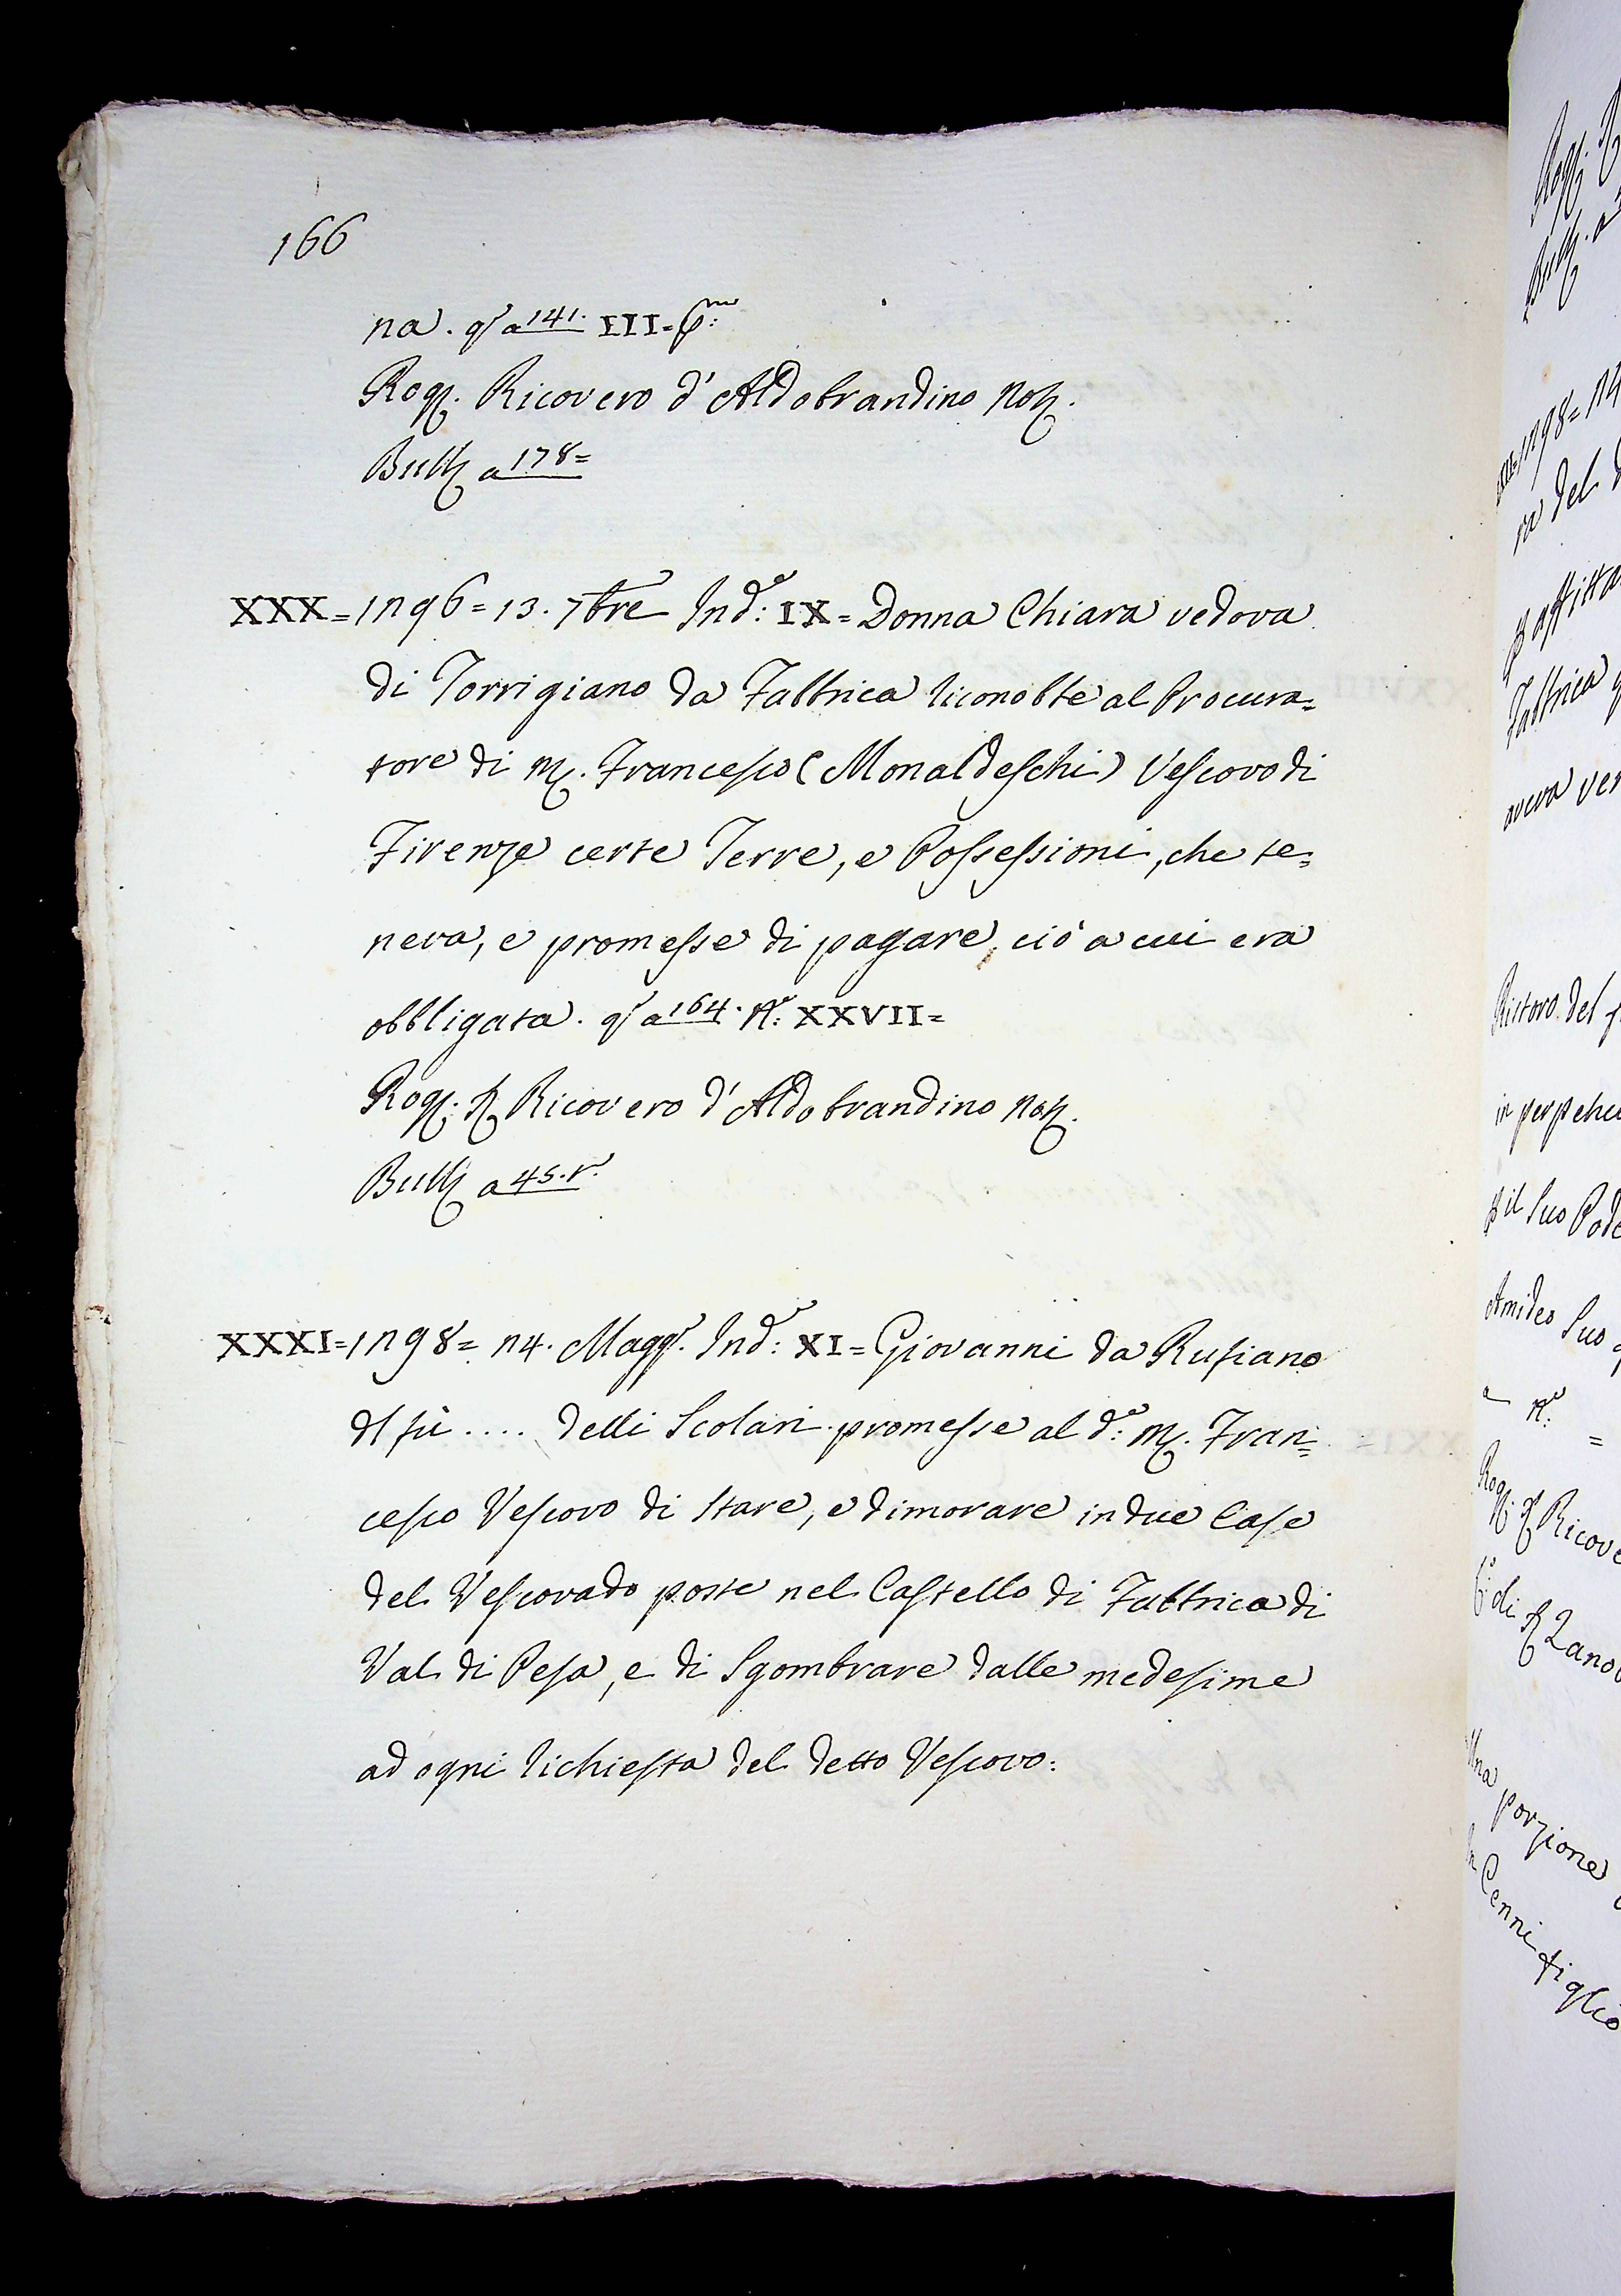 166
na. qͤ a 141. III =
Rogᵗ. Ricovero d'Aldobrandino Notͦ.
Bullͤ a 178 =
XXX = 1296 = 13. 7bre Indᵉ: IX = Donna Chiara vedova
di Torrigiano da Fabbrica riconobbe al Procura=
tore di Mͬ. Francesco (Monaldeschi) Vescovo di
Firenze certe Terre, e Possessioni, che te=
neva, e promesse di pagare, ciò a cui era
obbligata. qͤ a 164. Nͦ: XXVII =
Rogᵗ. Sͬ Ricovero d'Aldobrandino Notͦ.
Bullͤ a 45. r.
XXXI = 1298 = 24. Maggͦ. Indᵉ: XI = Giovanni da Rusiano
dl fù .... delli Scolari promesse al dͦ: Mͬ. Fran=
cesco Vescovo di stare, e dimorare in due Case
del Vescovado poste nel Castello di Fabbrica di
Val di Pesa, e di sgombrare dalle medesime
ad ogni richiesta del detto Vescovo.
1298 =
ra del
p affitta
Fabbrica
aveva ver
Ristoro del
in perpetu
p il suo Pode
Amideo suo
a Nͦ: =
Rogᵗ. Sͬ Ricove
di Sͬ Zanob
Una porzione
Cenni figlio